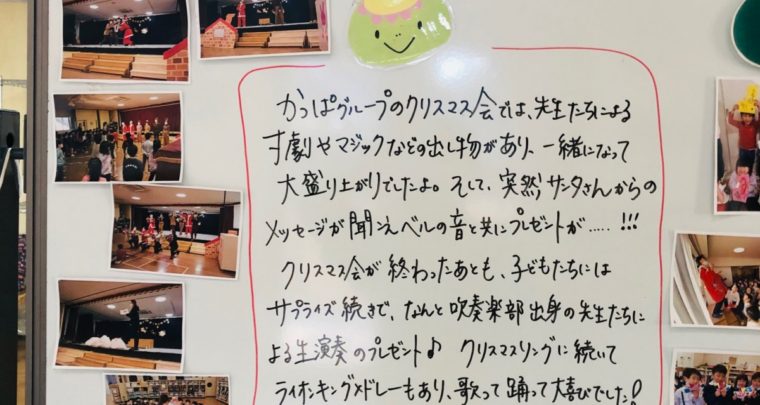 かっぱグループのクリスマス会では、先生たちによる
寸劇やマジックなどの出し物があり、一緒になって
大盛り上がりでしたよ。そして、突然サンタさんからの
メッセージが聞こえベルの音と共にプレゼントが.....!!!
クリスマス会が終わったあとも、子どもたちには
サプライズ続きで、なんと吹奏楽部出身の先生たちに
よる生演奏のプレゼント♪ クリスマスソングに続いて
ライオンキングメドレーもあり、歌って踊って大喜びでした!